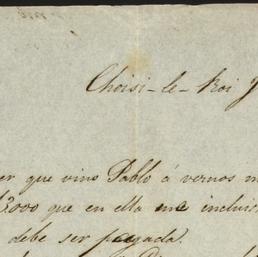 Choisi-le-Roi
er que vino Pablo á vernos
3.000 que en ella me inclui
debe ser pagada.